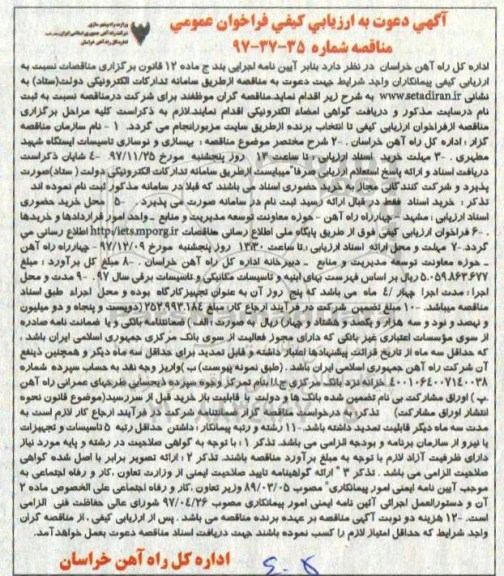 آگهي دعوت به ارزيابي كيفي فراخوان عمومي
مناقصه شماره ۳۵-۳۷-۹۷
وزارت راه و شهرسازی
اداره کل راه آهن خراسان
اداره کل راه آهن خراسان در نظر دارد بنابر آیین نامه اجرایی بند ج ماده ۱۲ قانون برگزاری مناقصات نسبت به
ارزیابی کیفی پیمانکاران واجد شرایط جهت دعوت به مناقصه ازطریق سامانه تدارکات الکترونیکی دولت(ستاد) به
نشانی www.setadiran.ir به شرح زیر اقدام نماید.مناقصه گران موظفند برای شرکت درمناقصه نسبت به ثبت
نام درسایت مذکور و دریافت گواهی امضاء الکترونیکی اقدام نمایند.لازم به ذکراست کلیه مراحل برگزاری
مناقصه ازفراخوان ارزیابی کیفی تا انتخاب برنده ازطریق سایت مزبورانجام می گردد. ۱- نام سازمان مناقصه
گزار : اداره کل راه آهن خراسان . ۲- شرح مختصر موضوع مناقصه : بهسازی و نوسازی تاسیسات ایستگاه شهید
مطهری . ۳- مهلت خرید اسناد ارزیابی : تا ساعت ۱۳ روز پنجشنبه مورخ ۹۷/۱۱/۲۵ ۴- شایان ذکراست
دریافت اسناد و ارائه پاسخ استعلام ارزیابی صرفا"میبایست ازطریق سامانه تدارکات الکترونیکی دولت ( ستاد)صورت
پذیرد و شرکت کنندگان مجاز به خرید حضوری اسناد می باشند که قبلا در سامانه مذکور ثبت نام نموده اند
تذکر : خرید اسناد فقط در قبال ارائه رسید ثبت نام در سامانه صورت می پذیرد . ۵- محل خرید حضوری
اسناد ارزیابی : مشهد - چهارراه راه آهن - حوزه معاونت توسعه مدیریت و منابع - واحد امور قراردادها و خریدها
۶- فراخوان ارزیابی کیفی فوق از طریق پایگاه ملی اطلاع رسانی مناقصات http://iets.mporg.ir اطلاع رسانی می
گردد. ۷- مهلت و محل ارائه اسناد ارزیابی : تا ساعت ۱۳:۳۰ روز پنجشنبه مورخ ۹۷/۱۲/۰۹ - چهارراه راه آهن
- حوزه معاونت توسعه مدیریت و منابع - دبیرخانه اداره کل راه آهن خراسان . ۸- مبلغ کل برآورد : مبلغ
۵،۰۵۹،۸۶۳،۶۷۷ ریال بر اساس فهرست بهای ابنیه و تاسیسات مکانیکی و تاسیسات برقی سال ۹۷. ۹- مدت و محل
اجرا : مدت اجرا چهار /۴/ ماه می باشد که پنج روز آن به عنوان تجهیزکارگاه بوده و محل اجراء طبق اسناد
مناقصه میباشد. ۱۰- مبلغ تضمین شرکت در فرآیند ارجاع کار: مبلغ ۲۵۲،۹۹۳،۱۸۴ (دویست و پنجاه و دو میلیون
و نهصد و نود و سه هزار و یکصد و هشتاد و چهار) ریال به صورت :الف ) ضمانتنامه بانکی و یا ضمانت نامه صادره
از سوی مؤسسات اعتباری غیر بانکی که دارای مجوز فعالیت از سوی بانک مرکزی جمهوری اسلامی ایران باشد .
که حداقل سه ماه از تاریخ قرائت پیشنهادها اعتبار داشته و قابل تمدید برای حداقل سه ماه دیگر و همچنین ذینفع
آن شرکت راه آهن جمهوری اسلامی ایران باشد . (طبق نمونه پیوست) ب )واریز وجه نقد به حساب سپرده شماره
۴۰۰۱۰۶۴۰۰۷۱۴۰۰۳۸ خزانه نزد بانک مرکزی ج.ا.ا بنام تمرکز وجوه سپرده ذیحسابی طرحهای عمرانی راه آهن
.پ ) اوراق مشارکت بی نام تضمین شده بانک ها و دولت با قابلیت باز خرید قبل از سررسید(موضوع قانون نحوه
انتشار اوراق مشارکت) تذکر: بنا به درخواست مناقصه گزار ضمانتنامه شرکت در فرآیند ارجاع کار لازم است به
مدت سه ماه دیگر قابلیت تمدید داشته باشد. ۱۱- رشته و رتبه پیمانکار : داشتن حداقل رتبه ۵ تاسیسات و تجهیزات
یا نیرو از سازمان برنامه و بودجه الزامی می باشد. تذکر ۱: با توجه به گواهی صلاحیت در رشته و پایه مورد نیاز
دارای ظرفیت آزاد لازم با توجه به مبلغ برآورد مناقصه باشند. تذکر ۲: ارائه تصویر برابر با اصل شده گواهی
صلاحیت الزامی می باشد . تذکر ۳ " ارائه گواهینامه تایید صلاحیت ایمنی از وزارت تعاون ،کار و رفاه اجتماعی به
موجب آیین نامه ایمنی امور پیمانکاری" مصوب ۸۹/۰۳/۰۵ وزیر تعاون ،کار و رفاه اجتماعی علی الخصوص ماده ۲
آن و دستورالعمل اجرائی آئین نامه ایمنی امور پیمانکاری مصوب ۹۷/۰۴/۲۶ شورای عالی حفاظت فنی الزامی
است. ۱۲- هزینه دو نوبت آگهی مناقصه بر عهده برنده مناقصه می باشد . پس از ارزیابی کیفی ، از مناقصه گران
واجد شرایط که حداقل امتیاز لازم را کسب نموده باشند جهت دریافت اسناد مناقصه دعوت بعمل خواهدآمد.
اداره کل راه آهن خراسان